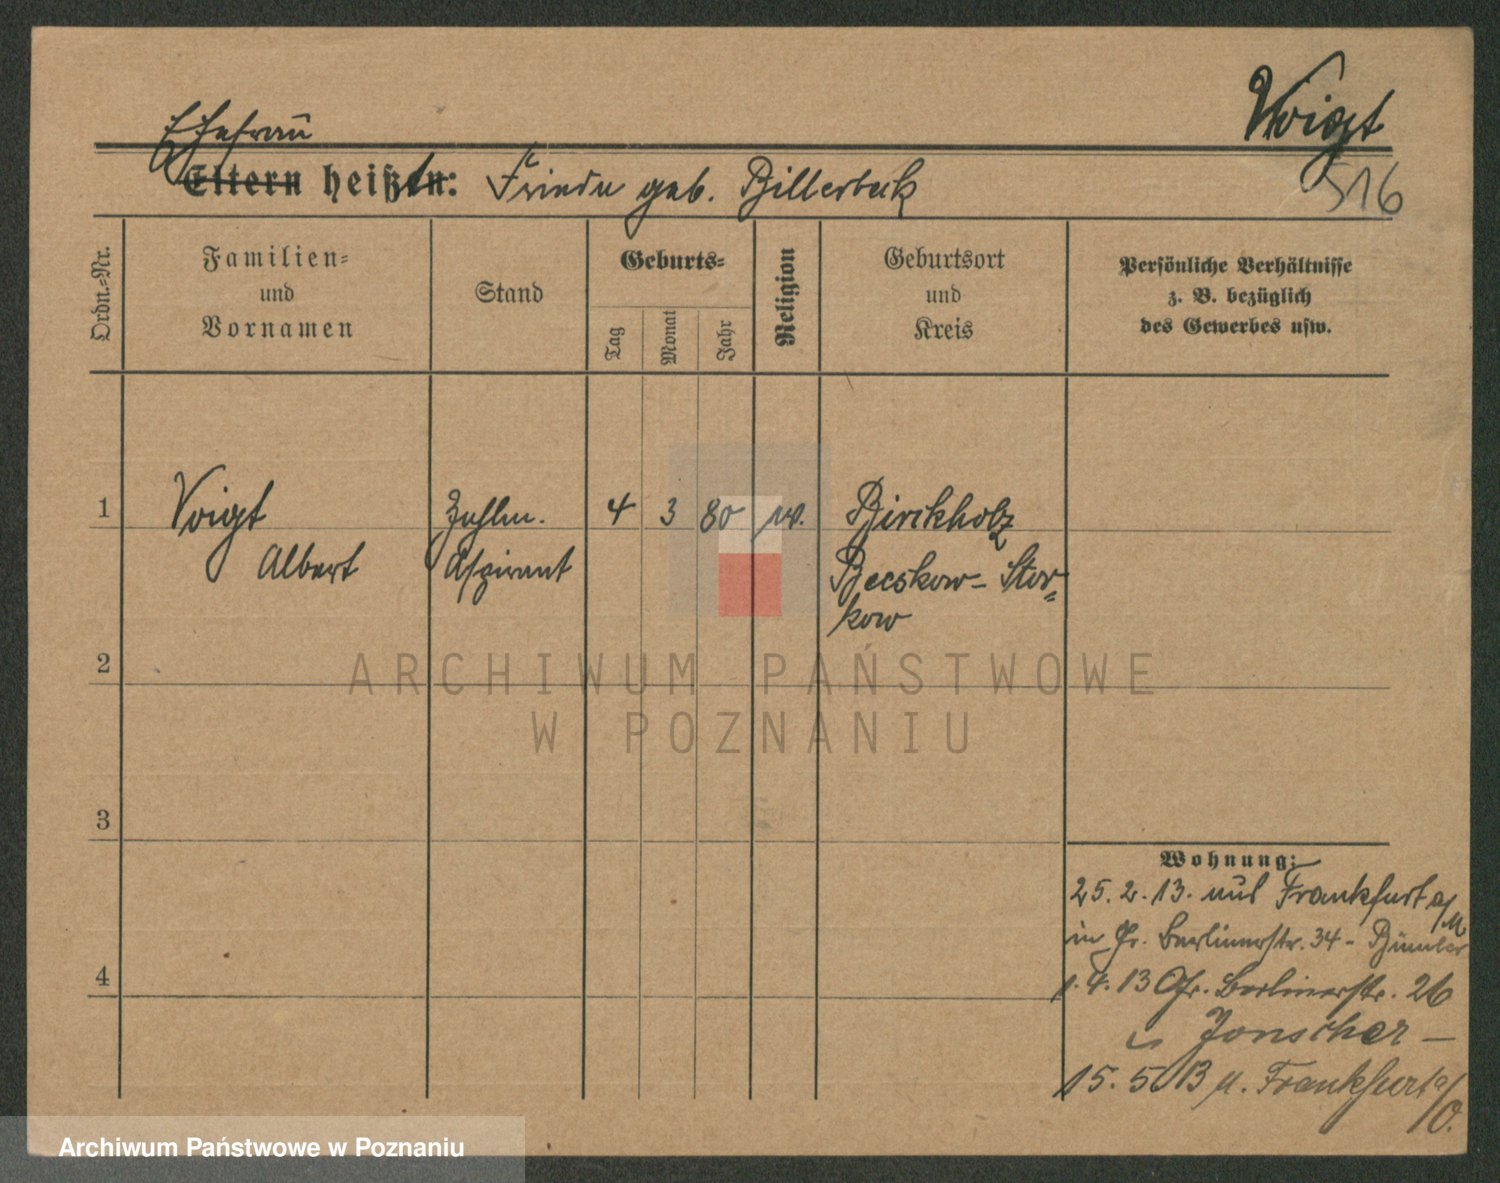 Voigt
516
Ehefrau
Eltern heißt: Friede geb. Billerbeck
Ordn.-Nr.
Familien-
und
Vornamen
Stand
Geburts-
Tag
Monat
Jahr
Religion
Geburtsort
und
Kreis
Persönliche Verhältnisse
z. B. bezüglich
des Gewerbes usw.
1
Voigt
Albert
Zahlm.
Aspirant
4
3
80
ev.
Birckholz
Beeskow-Stor=
kow
2
3
4
Wohnung:
25.2.13. aus Frankfurt a/M
in Gr. Berlinerstr. 34 -
1.4.13 Gr. Berlinerstr. 26
Jonscher -
15.5.13 n. Frankfurt a/O.
ARCHIWUM PAŃSTWOWE
W POZNANIU
Archiwum Państwowe w Poznaniu